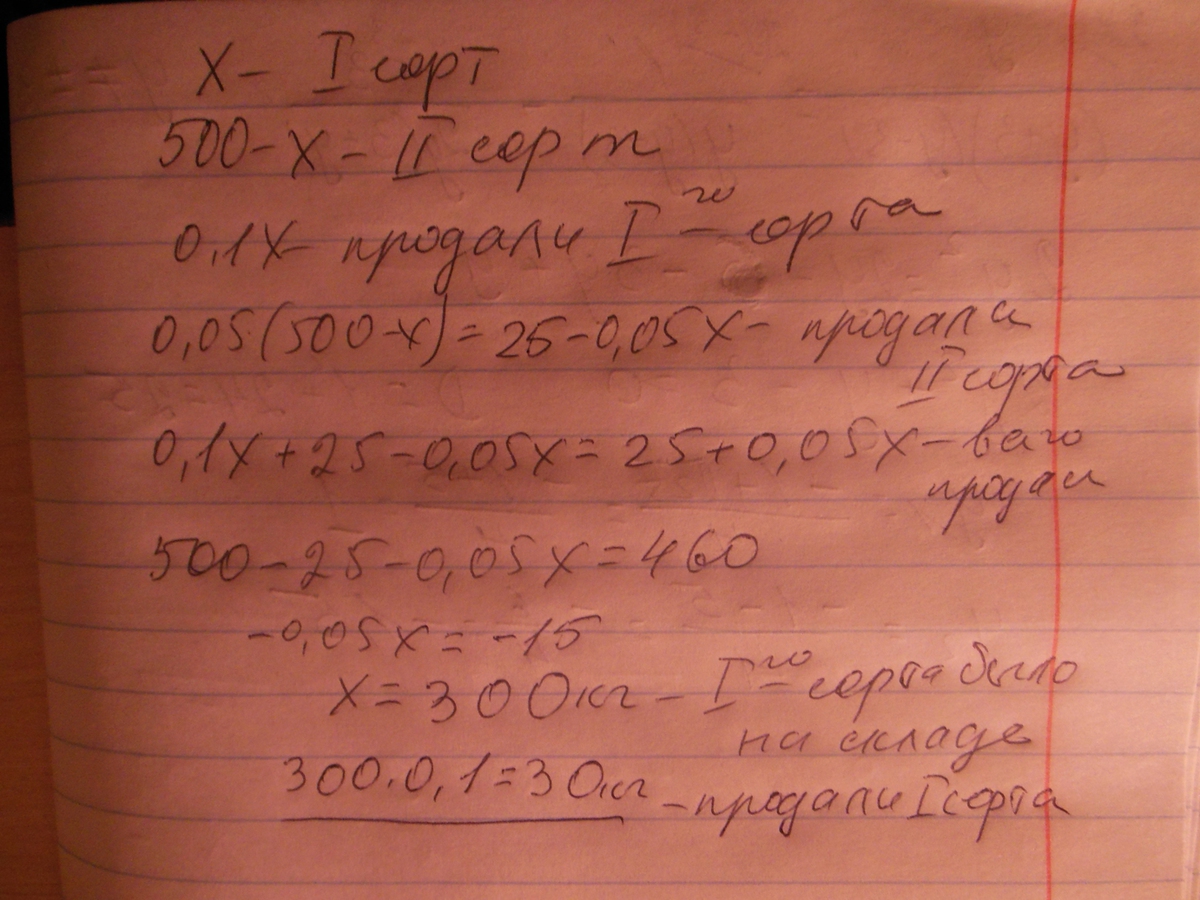 x – I сорт
500 – x – II сорт
0,1x – продали I – го сорта
0,05(500-x) = 25 – 0,05x – продали
II сорта
0,1x + 25 – 0,05x = 25 + 0,05x –
продали
500 – 25 – 0,05x = 460
-0,05x = -15
x = 300кг – I – го сорта было
на складе
300·0,1 = 30кг – продали I сорта